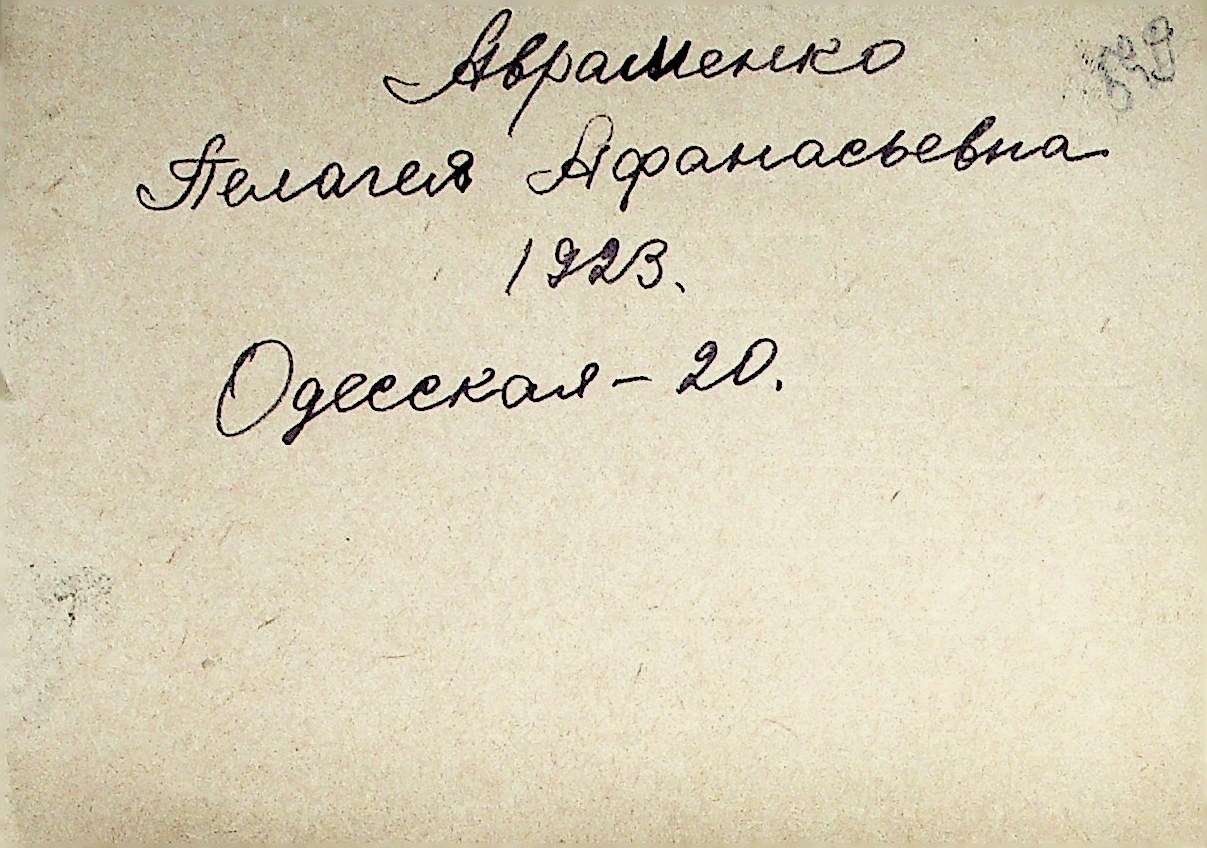 Авраменко
Пелагея Афанасьевна
1923.
Одесская - 20.